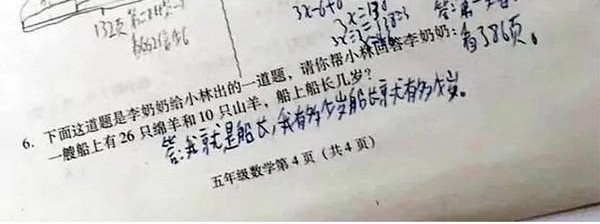 3x-6+6
132页
看了386页。
6. 下面这道题是李奶奶给小林出的一道题，请你帮小林回答李奶奶：
一艘船上有26只绵羊和10只山羊，船上船长几岁？
答:我就是船长,我有多少岁船长就有多少岁。
五年级数学第4页（共4页）